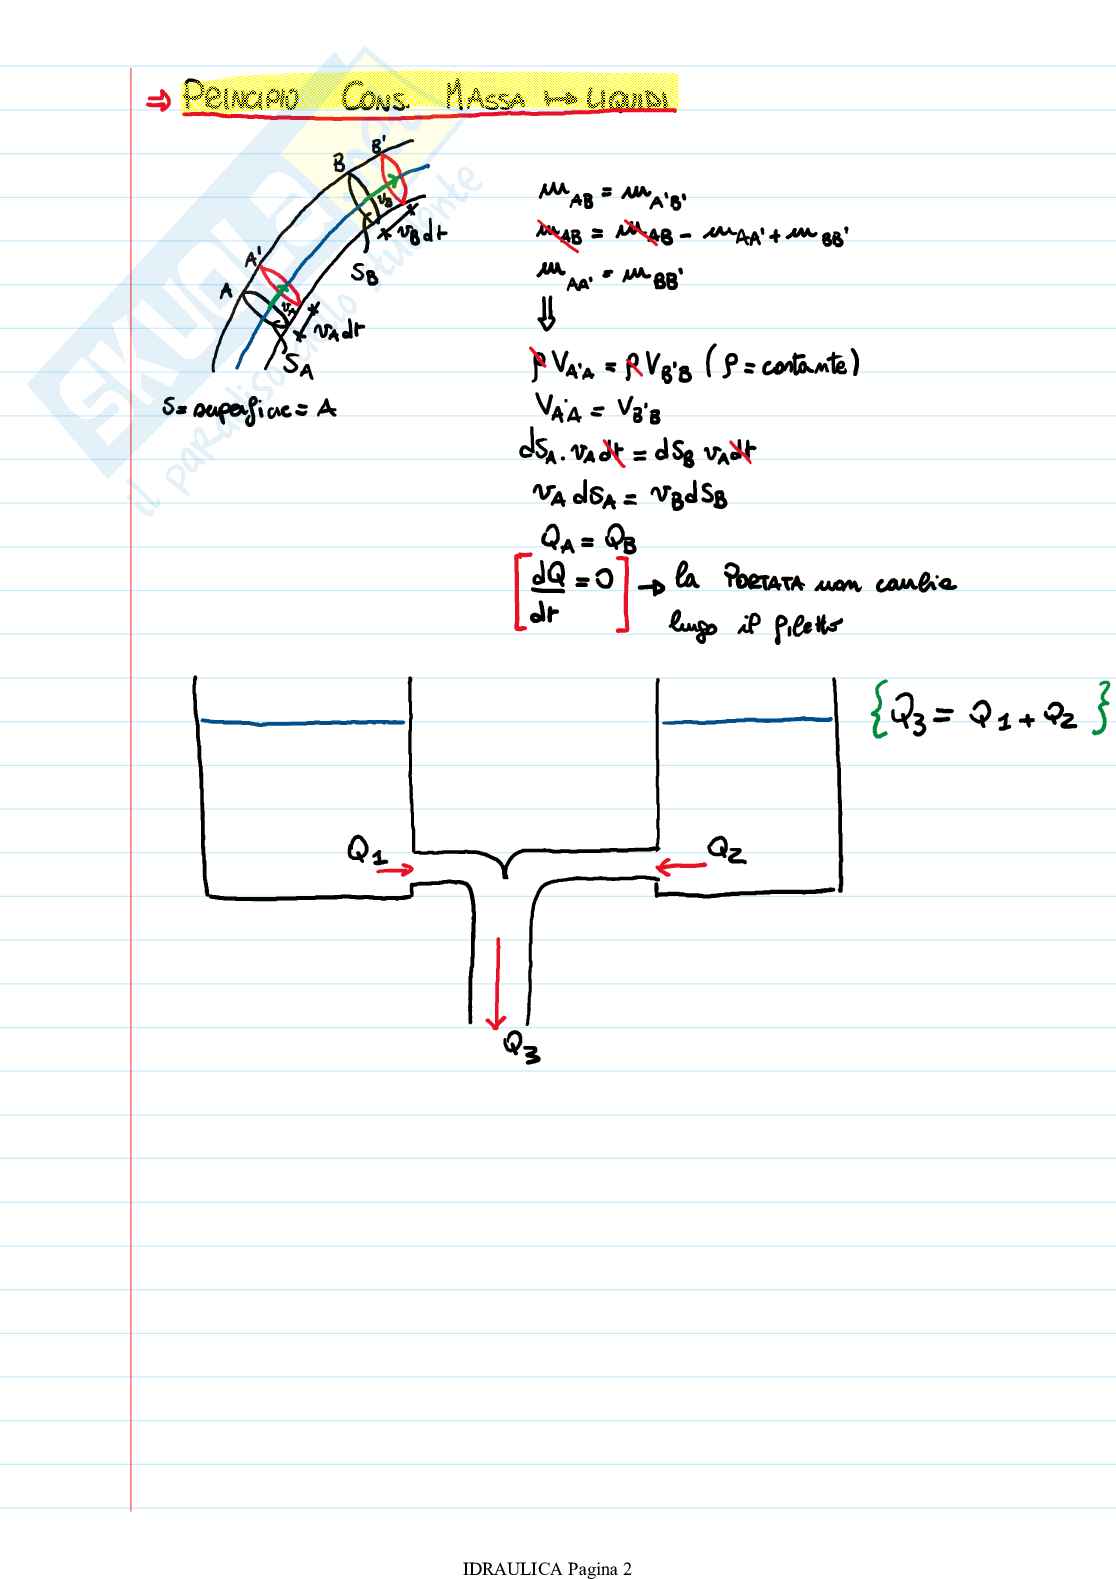 ⇒ PRINCIPIO CONS. MASSA ↦ LIQUIDI
B'
B
v_B
v_B dt
S_B
A'
A
v_A
v_A dt
S_A
S = superficie = A
m_AB = m_A'B'
m_AB = m_AB - m_AA' + m_BB'
m_AA' = m_BB'
⇓
ρ V_A'A = ρ V_B'B (ρ = costante)
V_A'A = V_B'B
dS_A · v_A dt = dS_B v_A dt
v_A dS_A = v_B dS_B
Q_A = Q_B
[dQ/dt = 0] → la PORTATA non cambia
lungo il filetto
{Q_3 = Q_1 + Q_2}
Q_1
Q_2
Q_3
SKUOLA.net
il paradiso dello studente
IDRAULICA Pagina 2